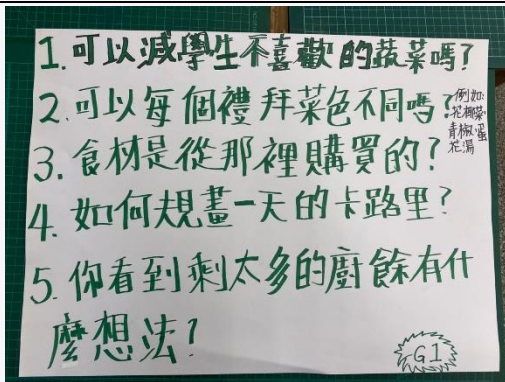 1.可以減學生不喜歡的蔬菜嗎?
2.可以每個禮拜菜色不同嗎?
例如:
花椰菜
青椒蛋
花湯
3.食材是從那裡購買的?
4.如何規畫一天的卡路里?
5.你看到剩太多的廚餘有什
麼想法?
G1